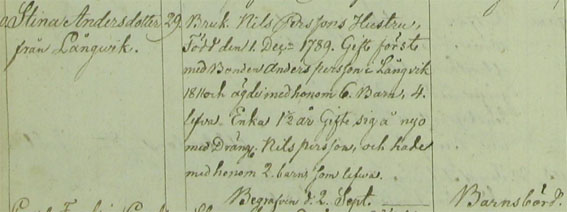 Stina Andersdotter 29. Bruk. Nils Perssons Hustru,
från Långwik. Född den 1. Dec. 1789. Gift först
med Bonden Anders persson i Långvik
1811 och ägde med honom 6. Barn, 4.
lefva. Enka 1½ år Gifte sig å nyo
med Dräng. Nils persson, och hade
med honom 2. barn, som lefva.
Begrafven d. 2. Sept. Barnsbörd.